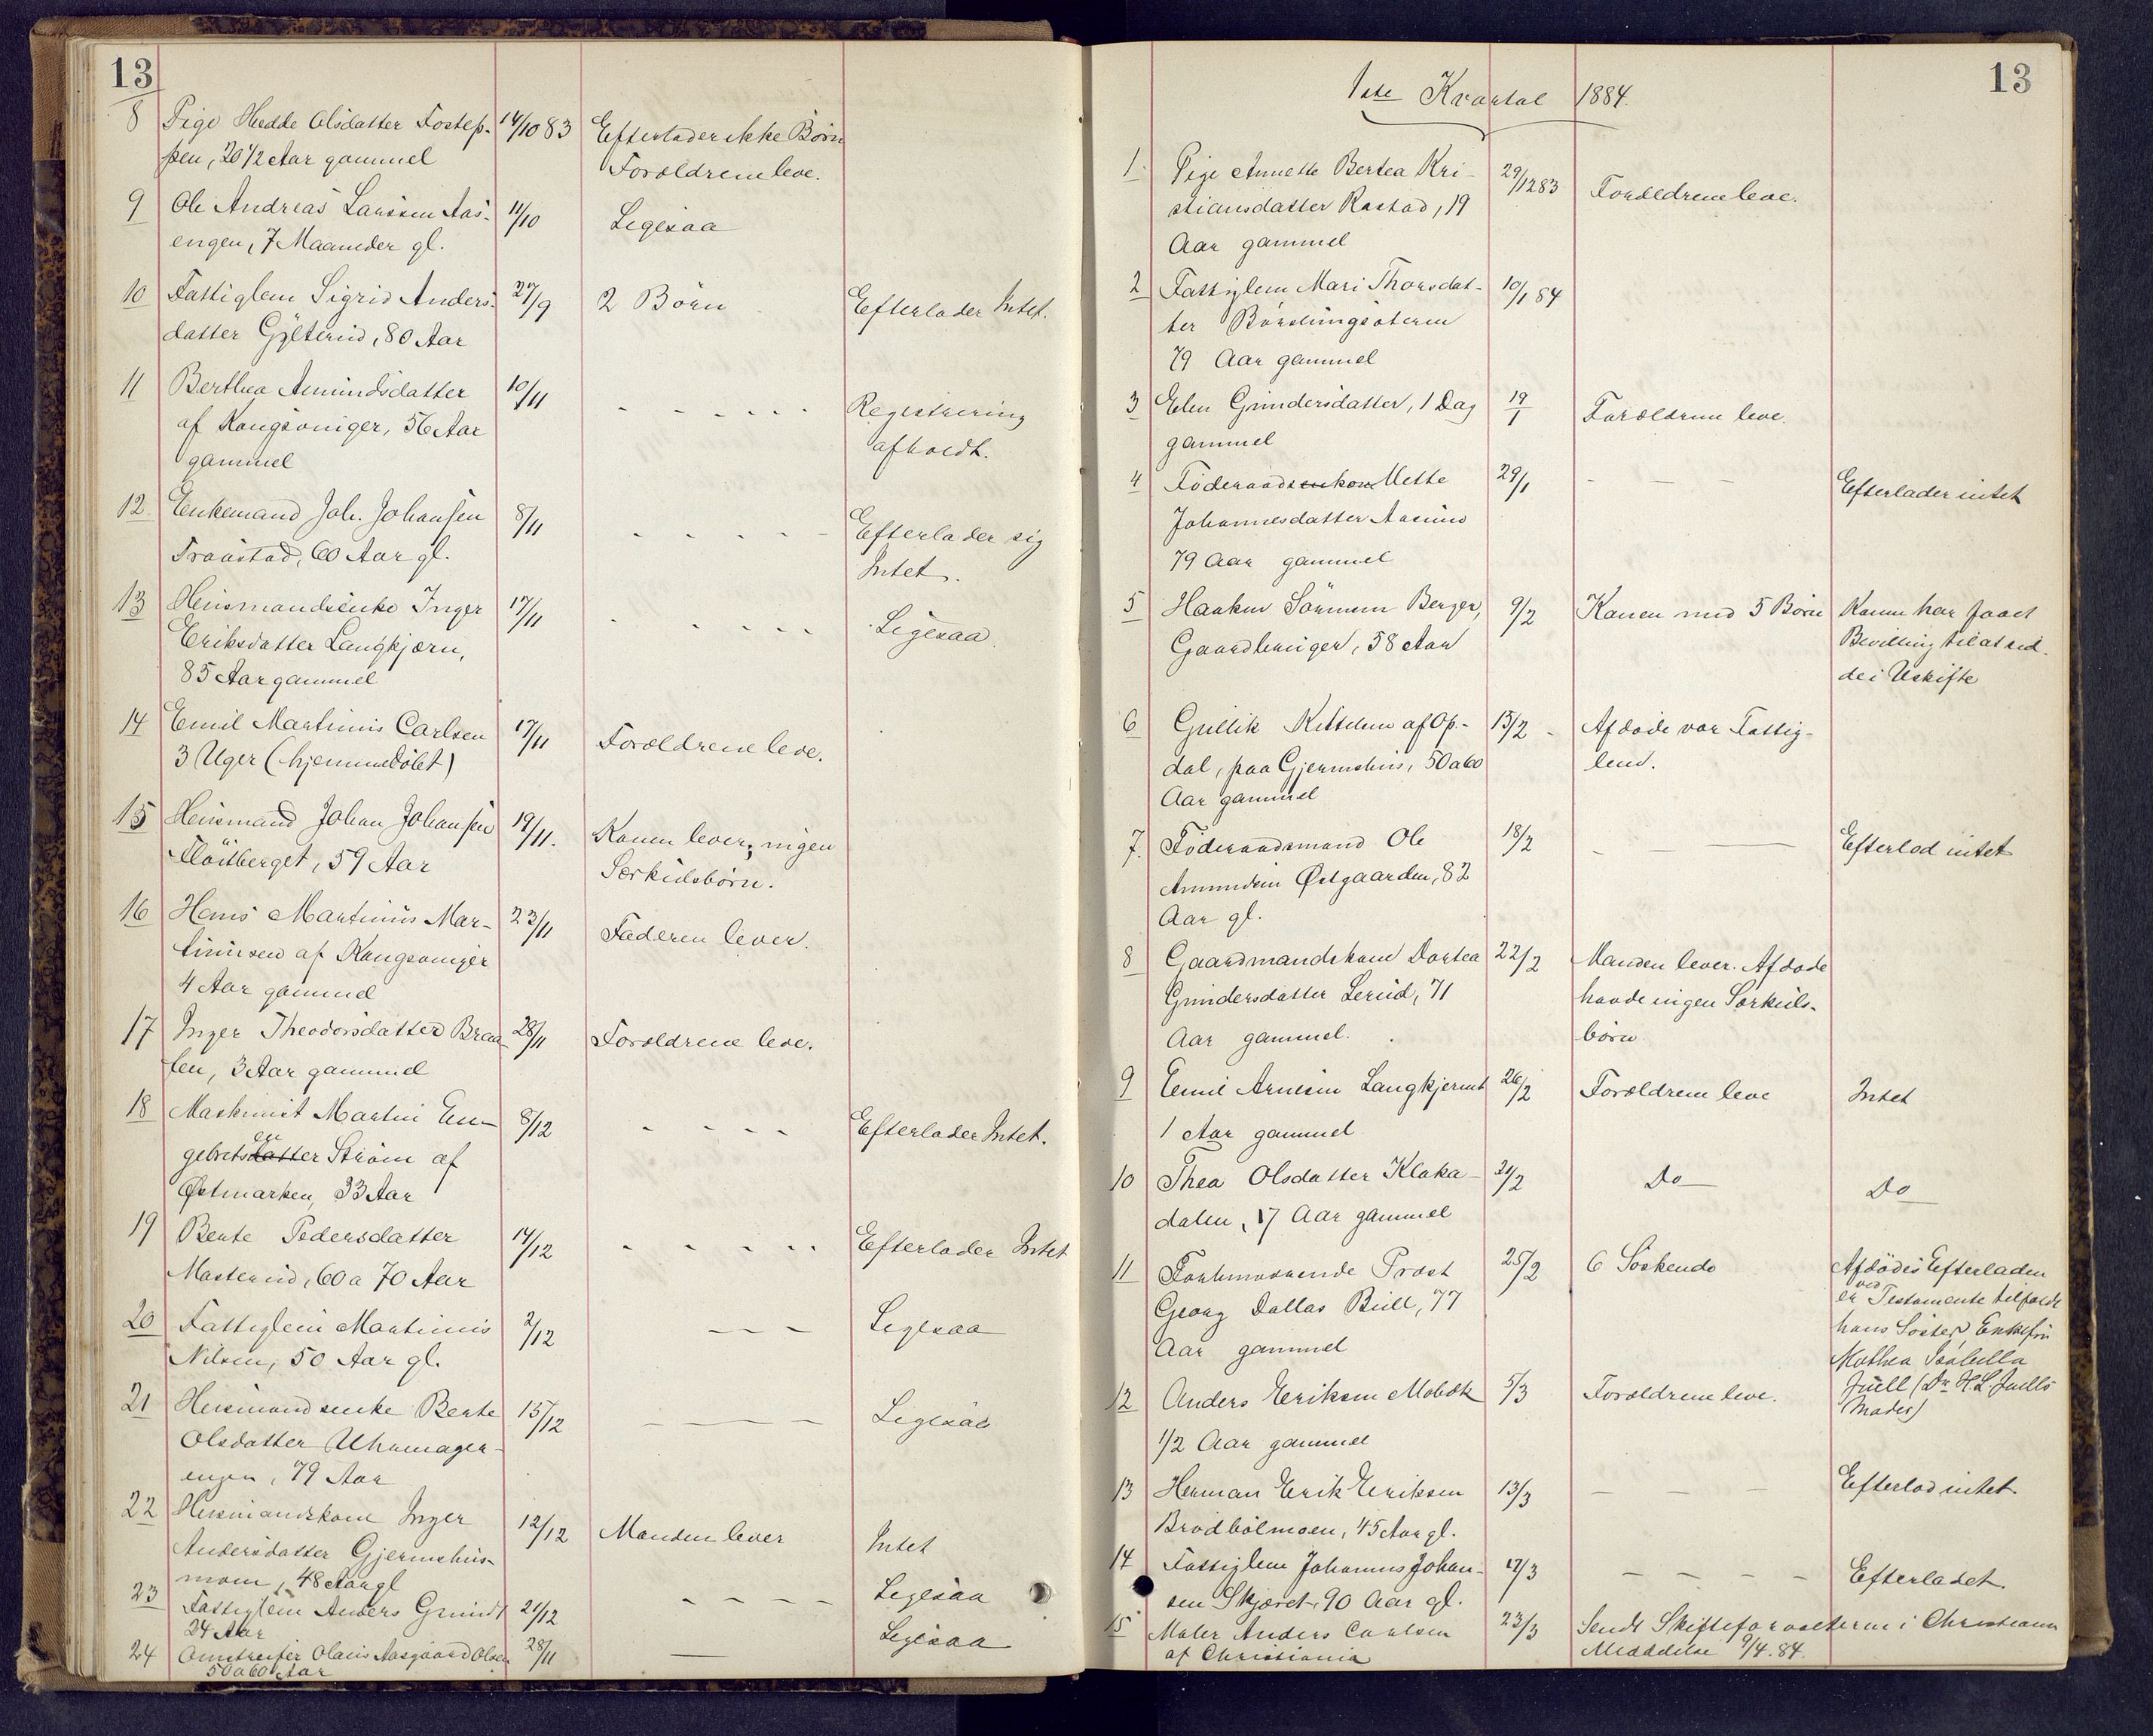 13
8 Pige Hedde Olsdatter Fostep- 14/10 83 Efterlader ikke Børn
pen, 20 1/2 Aar gammel Forældrene leve.
9 Ole Andreas Larssen Aas- 11/10 Ligesaa
engen, 7 Maaneder gl.
10 Fattiglem Sigrid Anders- 27/9 2 Börn Efterlader Intet.
datter Gylterud, 80 Aar
11 Berthea Amundsdatter 10/11 - - - - - - Registrering
af Kongsvinger, 56 Aar afholdt.
gammel
12. Enkemand Joh. Johansen 8/11 - - - - - Efterlader sig
Traastad, 60 Aar gl. Intet.
13 Husmandsenke Inger 17/11 - - - - - Ligesaa.
Eriksdatter Langkjærn,
85 Aar gammel
14 Emil Martinius Carlsen 17/11 Forældrene leve.
3 Uger (hjemmedöbt)
15 Husmand Johan Johansen 19/11. Konen lever; ingen
Flöitberget, 59 Aar Særkulsbörn.
16 Hans Martinius Mar- 23/11 Faderen lever.
tinusen af Kongsvinger
4 Aar gammel
17 Inger Theodorsdatter Braa- 28/11 Forældrene leve.
ten, 3 Aar gammel
18 Maskinist Martin En- 8/12 - - - - Efterlader Intet.
gebretsdatter en Ström af
Østmarken, 33 Aar
19 Berte Pedersdatter 14/12 - - - - - Efterlader Intet
Masterud, 60 a 70 Aar
20 Fattiglem Martinius 2/12 - - - Ligesaa
Nilsen, 50 Aar gl.
21 Husmandsenke Berte 15/12 - - - - Ligesaa
Olsdatter Uhrmager-
engen, 79 Aar
22 Husmandskone Inger 12/12 Manden lever Intet
Andersdatter Gjermshus-
moen, 48 Aar gl
23 Fattiglem Anders Grindt 21/12 - - - - Ligesaa
24 Aar
24 Omstreifer Olaus Aasgaard Olsen 28/11 — Ligesaa
50 a 60 Aar
13
1ste Kvartal 1884.
1. Pige Annette Bertea Kri- 29/12 83 Forældrene leve.
stiansdatter Rastad, 19
Aar gammel
2 Fattiglem Mari Thorsdat- 10/1 84
ter Börslungsæteren
79 Aar gammel
3 Elen Gundersdatter, 1 Dag 19/1 Forældrene leve.
gammel
4 Föderaadsenkone Mette 29/1 - - - Efterlader intet
Johannesdatter Aarud
79 Aar gammel
5 Haaken Sörensen Berger, 9/2 Konen med 5 Börn Konen har faaet
Gaardbruger, 58 Aar Bevilling til at sid-
de i Uskifte
6 Gullik Kittelsen af Op- 15/2 - Afdöde var Fattig-
dal, paa Gjermshus, 50 a 60 lem.
Aar gammel
7. Föderaadsmand Ole 18/2 - - — Efterlod intet
Amundsen Østgaarden, 82
Aar gl.
8 Gaardmandskone Dortea 22/2 Manden lever. Afdöde
Gundersdatter Lerud, 71 havde ingen Særkuls-
Aar gammel. börn
9 Emil Arnesen Langkjernt 26/2 Forældrene leve Intet
1 Aar gammel
10 Thea Olsdatter Klaka- 21/2 Do Do
dalen, 17 Aar gammel
11 Forhenværende Provst 25/2 6 Söskende Afdödes Efterladen
Georg Dallas Bull, 77 er ved Testamente tilfaldt
Aar gammel hans Söster, Enkefru
Mathea Isabella
Juell (Dr H. L. Juells
Moder)
12 Anders Eriksen Mobæk 5/3 Forældrene leve.
1/2 Aar gammel
13 Herman Erik Eriksen 13/3 - - - Efterlod intet.
Brødbölmoen, 45 Aar gl.
14 Fattiglem Johannes Johan- 17/3 - - - - Efterladet.
sen Skjæret, 90 Aar gl.
15 Maler Anders Carlsen 23/3 Sendt Skifteforvalteren i Christiania
af Christiania Meddelelse 9/4. 84.